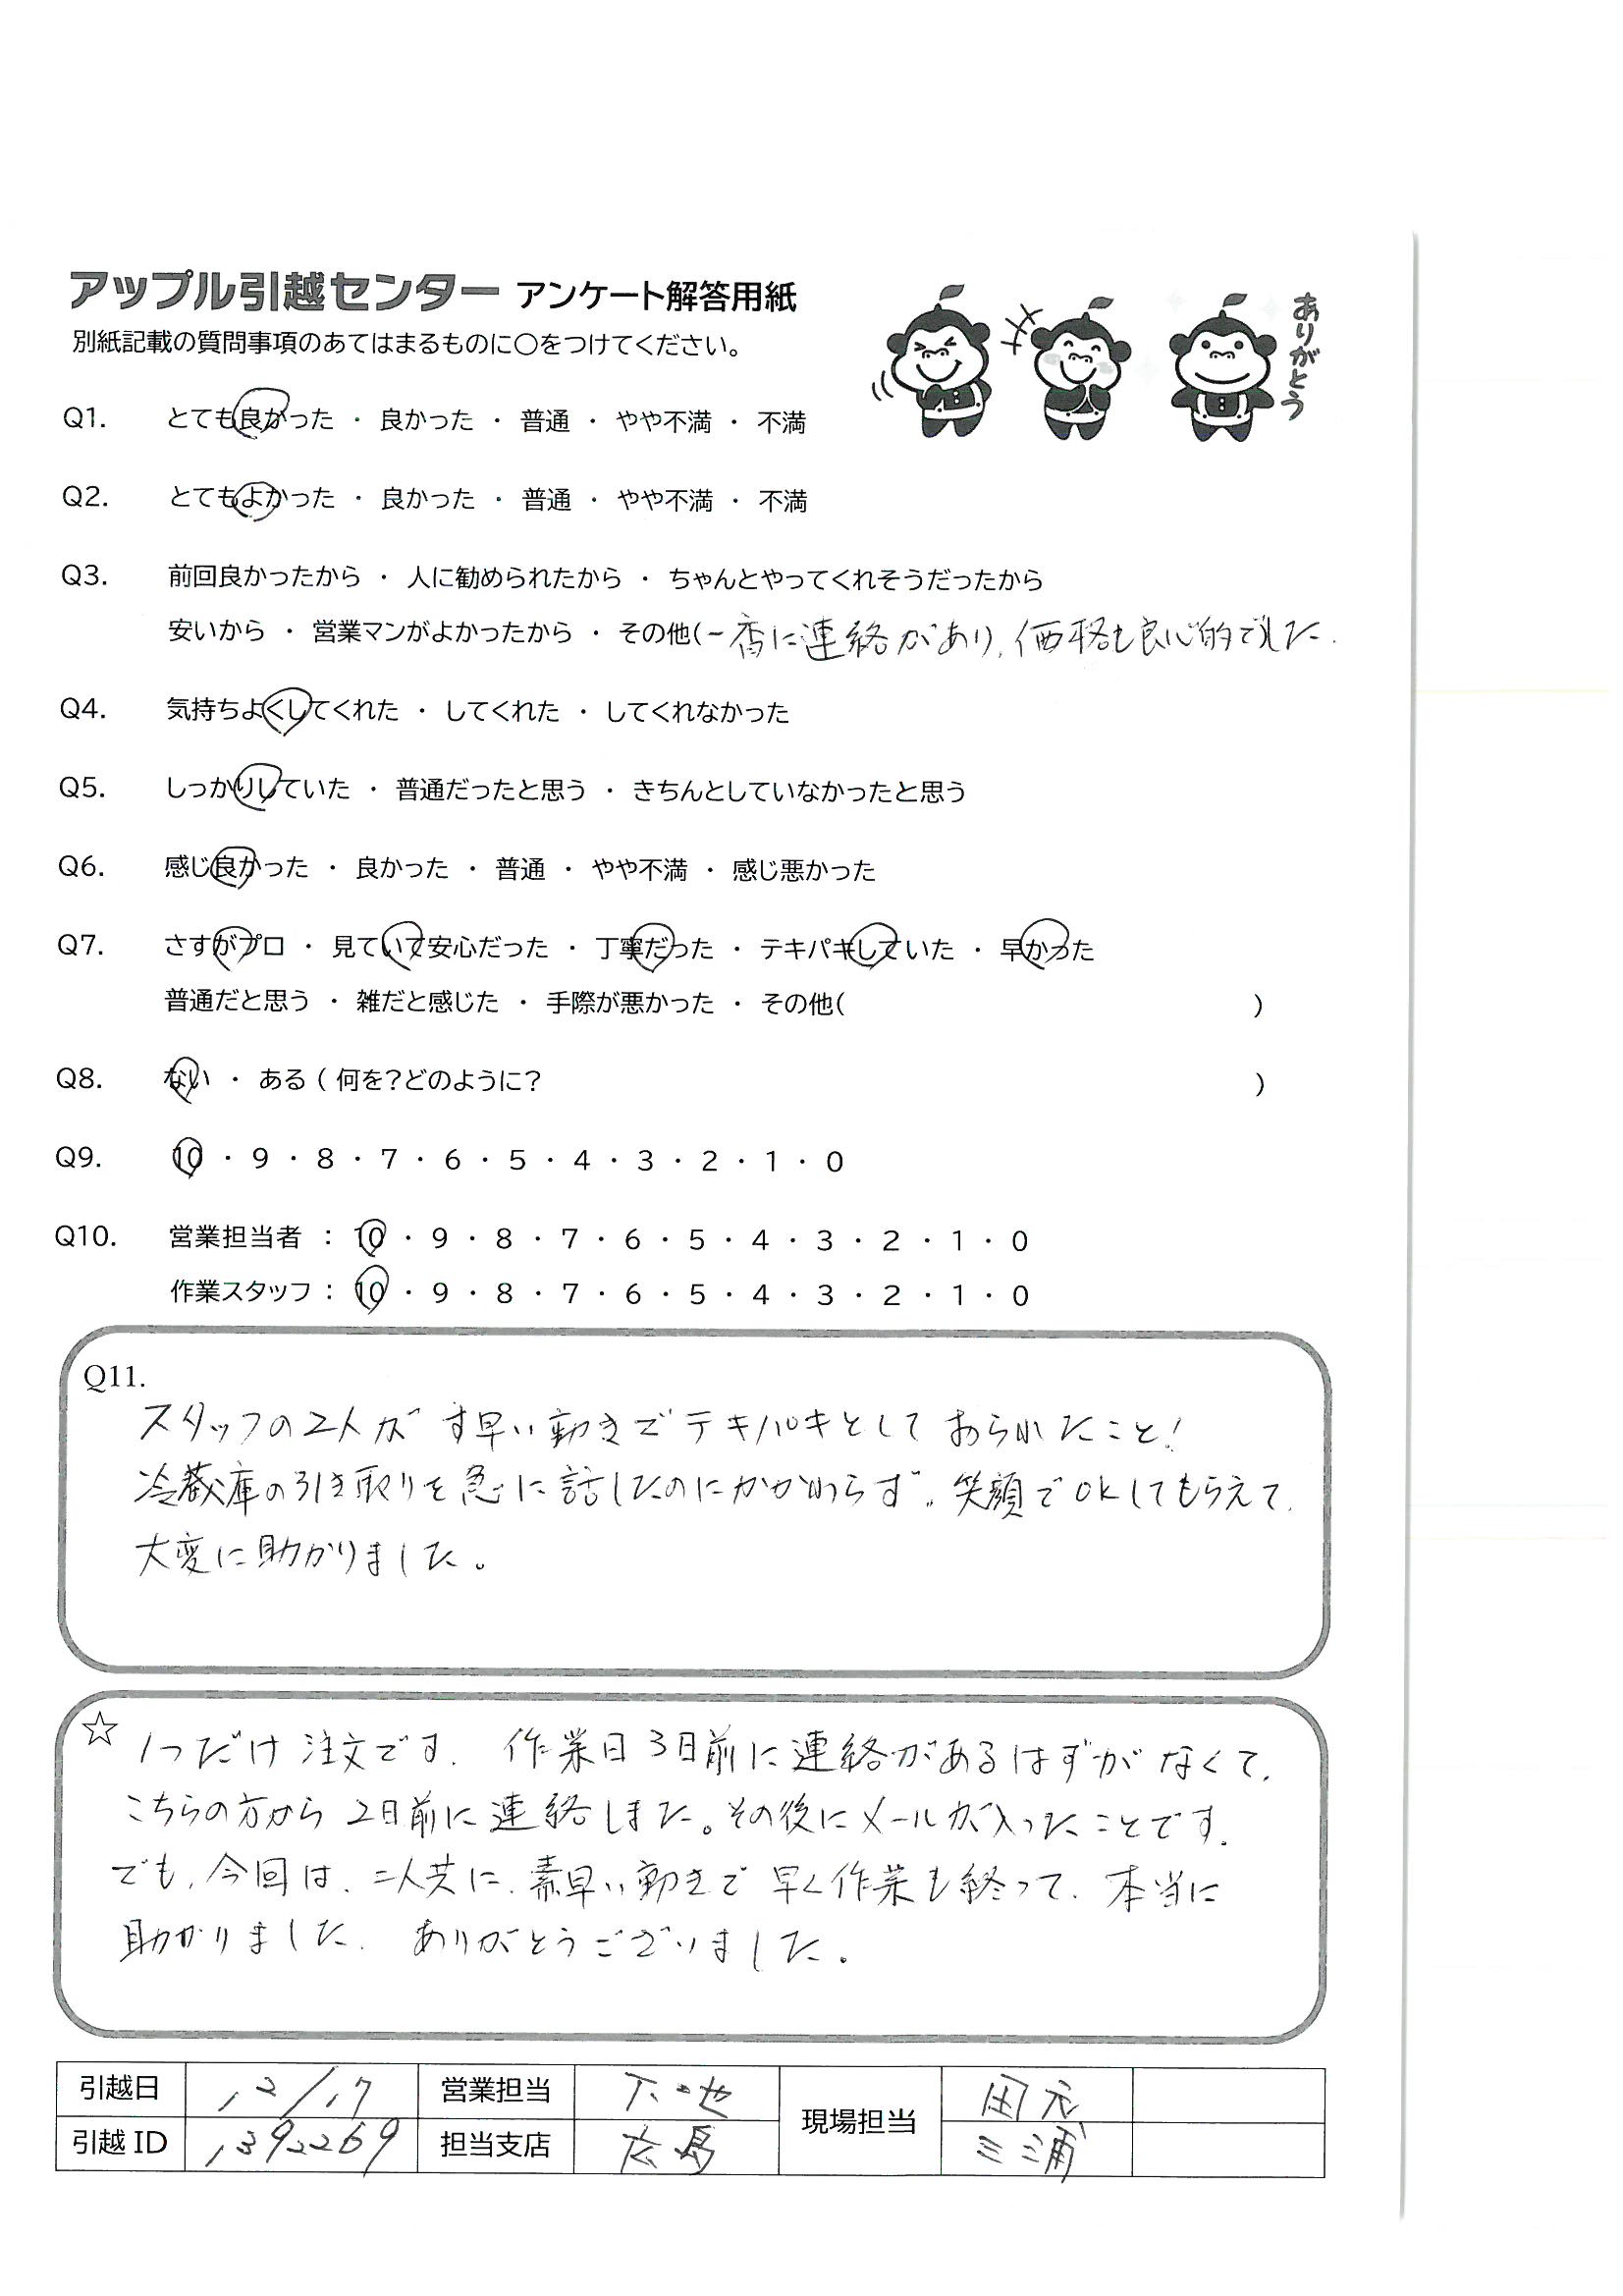 アップル引越センター アンケート解答用紙
別紙記載の質問事項のあてはまるものに○をつけてください。
ありがとう
Q1. とても良かった ・ 良かった ・ 普通 ・ やや不満 ・ 不満
Q2. とてもよかった ・ 良かった ・ 普通 ・ やや不満 ・ 不満
Q3. 前回良かったから ・ 人に勧められたから ・ ちゃんとやってくれそうだったから
安いから ・ 営業マンがよかったから ・ その他(一番に連絡があり、価格も良心的でした.
Q4. 気持ちよくしてくれた ・ してくれた ・ してくれなかった
Q5. しっかりしていた ・ 普通だったと思う ・ きちんとしていなかったと思う
Q6. 感じ良かった ・ 良かった ・ 普通 ・ やや不満 ・ 感じ悪かった
Q7. さすがプロ ・ 見ていて安心だった ・ 丁寧だった ・ テキパキしていた ・ 早かった
普通だと思う ・ 雑だと感じた ・ 手際が悪かった ・ その他( )
Q8. ない ・ ある ( 何を?どのように? )
Q9. 10 ・ 9 ・ 8 ・ 7 ・ 6 ・ 5 ・ 4 ・ 3 ・ 2 ・ 1 ・ 0
Q10. 営業担当者 : 10 ・ 9 ・ 8 ・ 7 ・ 6 ・ 5 ・ 4 ・ 3 ・ 2 ・ 1 ・ 0
作業スタッフ : 10 ・ 9 ・ 8 ・ 7 ・ 6 ・ 5 ・ 4 ・ 3 ・ 2 ・ 1 ・ 0
Q11.
スタッフの2人が す早い動きでテキパキとしておられたこと!
冷蔵庫の引き取りを急に話したのにかかわらず、笑顔でOKしてもらえて、
大変に助かりました。
☆ 1つだけ注文です. 作業日3日前に連絡があるはずがなくて、
こちらの方から2日前に連絡しました。その後にメールが入ったことです.
でも、今回は、二人共に、素早い動きで早く作業も終って、本当に
助かりました. ありがとうございました.
引越日 12/17 営業担当 下地 現場担当 田元
引越ID 1392269 担当支店 広島 三浦